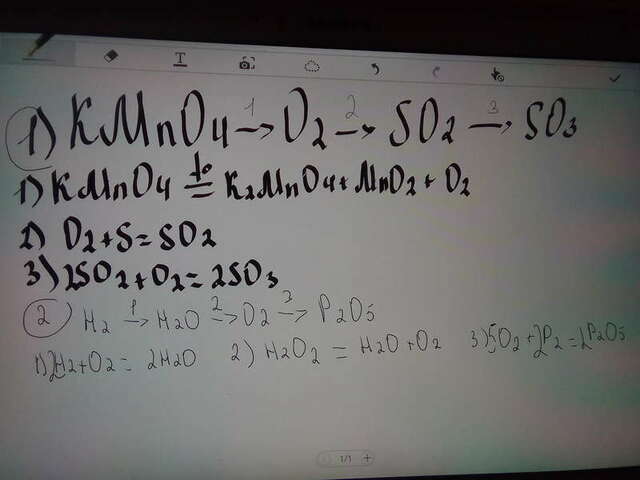 1) KMnO4 → 1 O2 → 2 SO2 → 3 SO3
1) KMnO4 t° = K2MnO4 + MnO2 + O2
2) O2 + S = SO2
3) 2SO2 + O2 = 2SO3
2) H2 → 1 H2O → 2 O2 → 3 P2O5
1) 2H2 + O2 = 2H2O 2) H2O2 = H2O + O2 3) 5O2 + 2P2 = 2P2O5
1/1